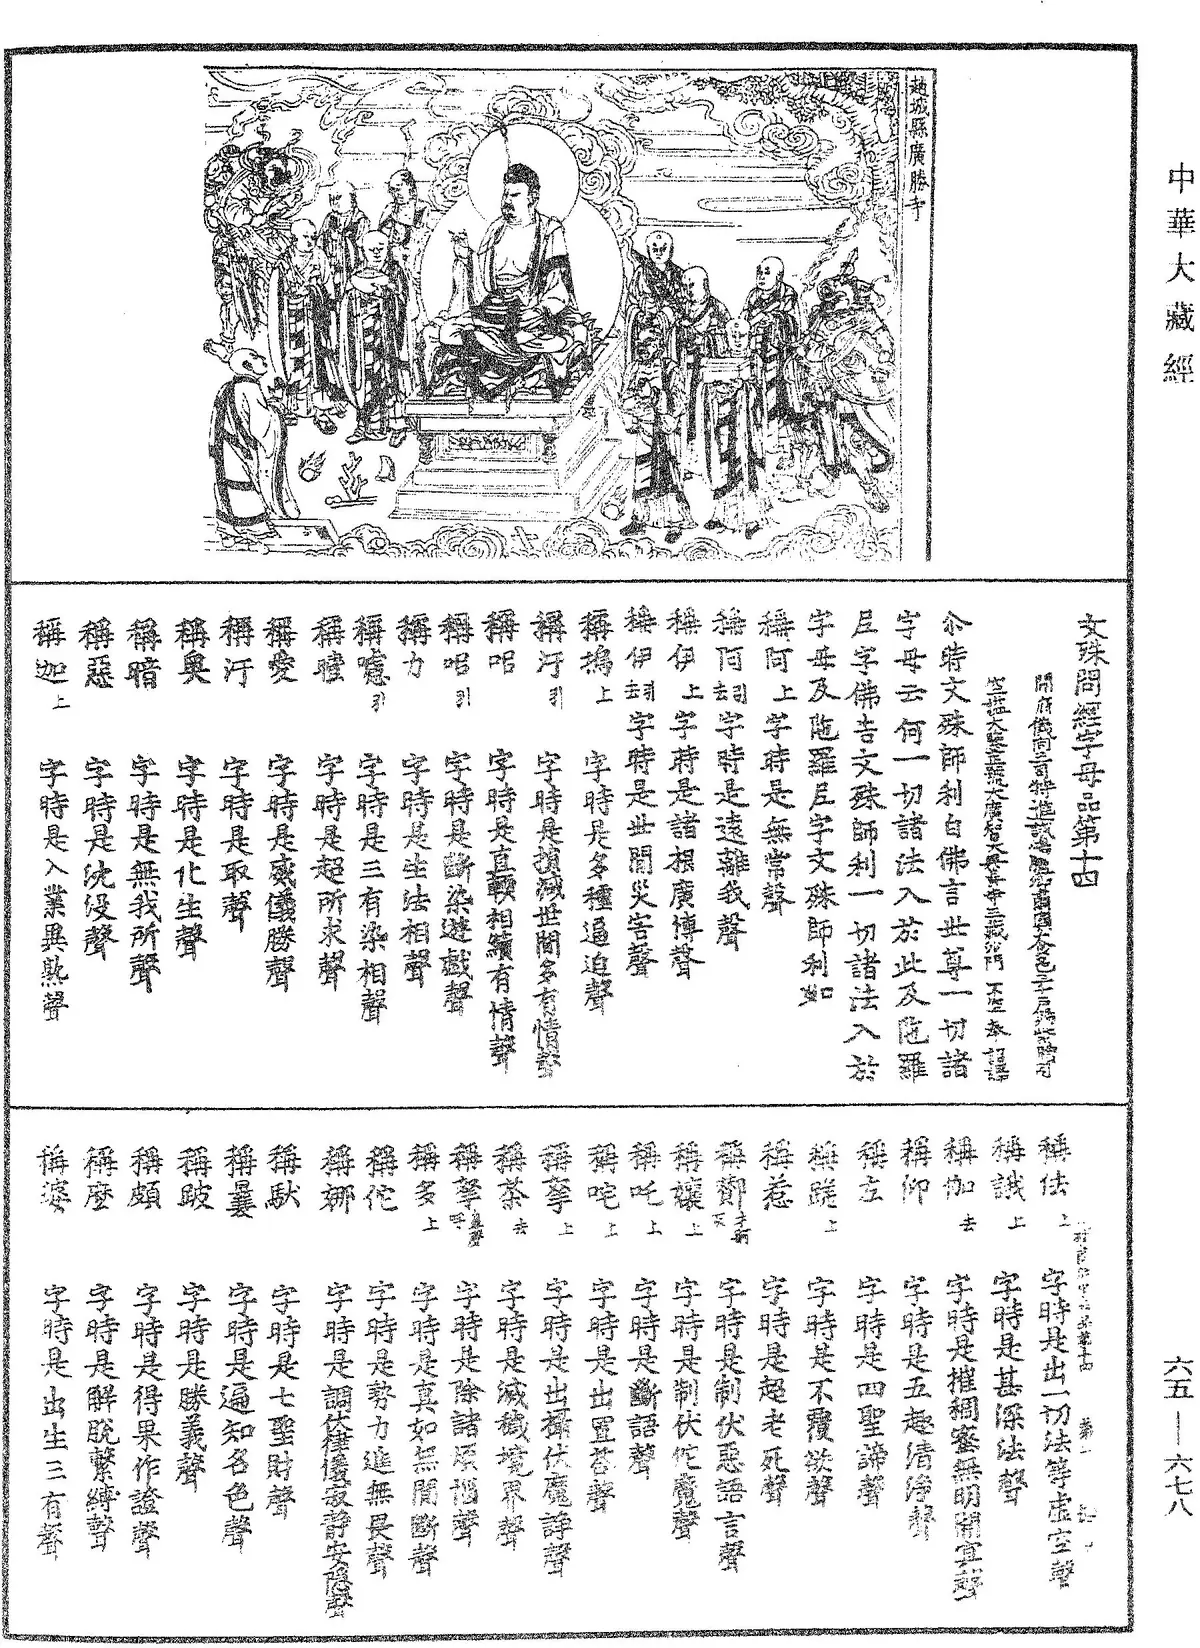 中華大藏經
趙城縣廣勝寺
文殊問經字母品第十四
開府儀同三司特進試鴻臚卿肅國公食邑三千戶賜紫贈司
空謚大鑒正號大廣智大興善寺三藏沙門不空奉詔譯
尒時文殊師利白佛言世尊一切諸
字母云何一切諸法入於此及陁羅
尼字佛告文殊師利一切諸法入於
字母及陁羅尼字文殊師利如
稱阿上字時是無常聲
稱阿引去字時是遠離我聲
稱伊上字時是諸根廣博聲
稱伊引去字時是世間災害聲
稱塢上字時是多種逼迫聲
稱汙引字時是損減世間多有情聲
稱呂字時是直輭相續有情聲
稱呂引字時是斷染遊戲聲
稱力字時是生法相聲
稱嚧引字時是三有染相聲
稱曀字時是超所求聲
稱愛字時是威儀勝聲
稱汙字時是取聲
稱奧字時是化生聲
稱暗字時是無我所聲
稱惡字時是沈沒聲
稱迦上字時是入業異熟聲
稱佉上字時是出一切法等虛空聲
稱誐上字時是甚深法聲
稱伽去字時是摧稠密無明闇冥聲
稱仰字時是五趣清淨聲
稱左字時是四聖諦聲
稱蹉上字時是不覆欲聲
稱惹字時是超老死聲
稱酇字時是制伏惡語言聲
稱穰上字時是制伏佗魔聲
稱吒上字時是斷語聲
稱咤上字時是出置荅聲
稱拏上字時是出攝伏魔諍聲
稱荼去字時是滅穢境界聲
稱拏字時是除諸煩惱聲
稱多上字時是真如無間斷聲
稱佗字時是勢力進無畏聲
稱娜字時是調伏律儀寂靜安隱聲
稱馱字時是七聖財聲
稱曩字時是遍知名色聲
稱跛字時是勝義聲
稱頗字時是得果作證聲
稱麼字時是解脫繫縛聲
稱婆字時是出生三有聲
六五—六七八